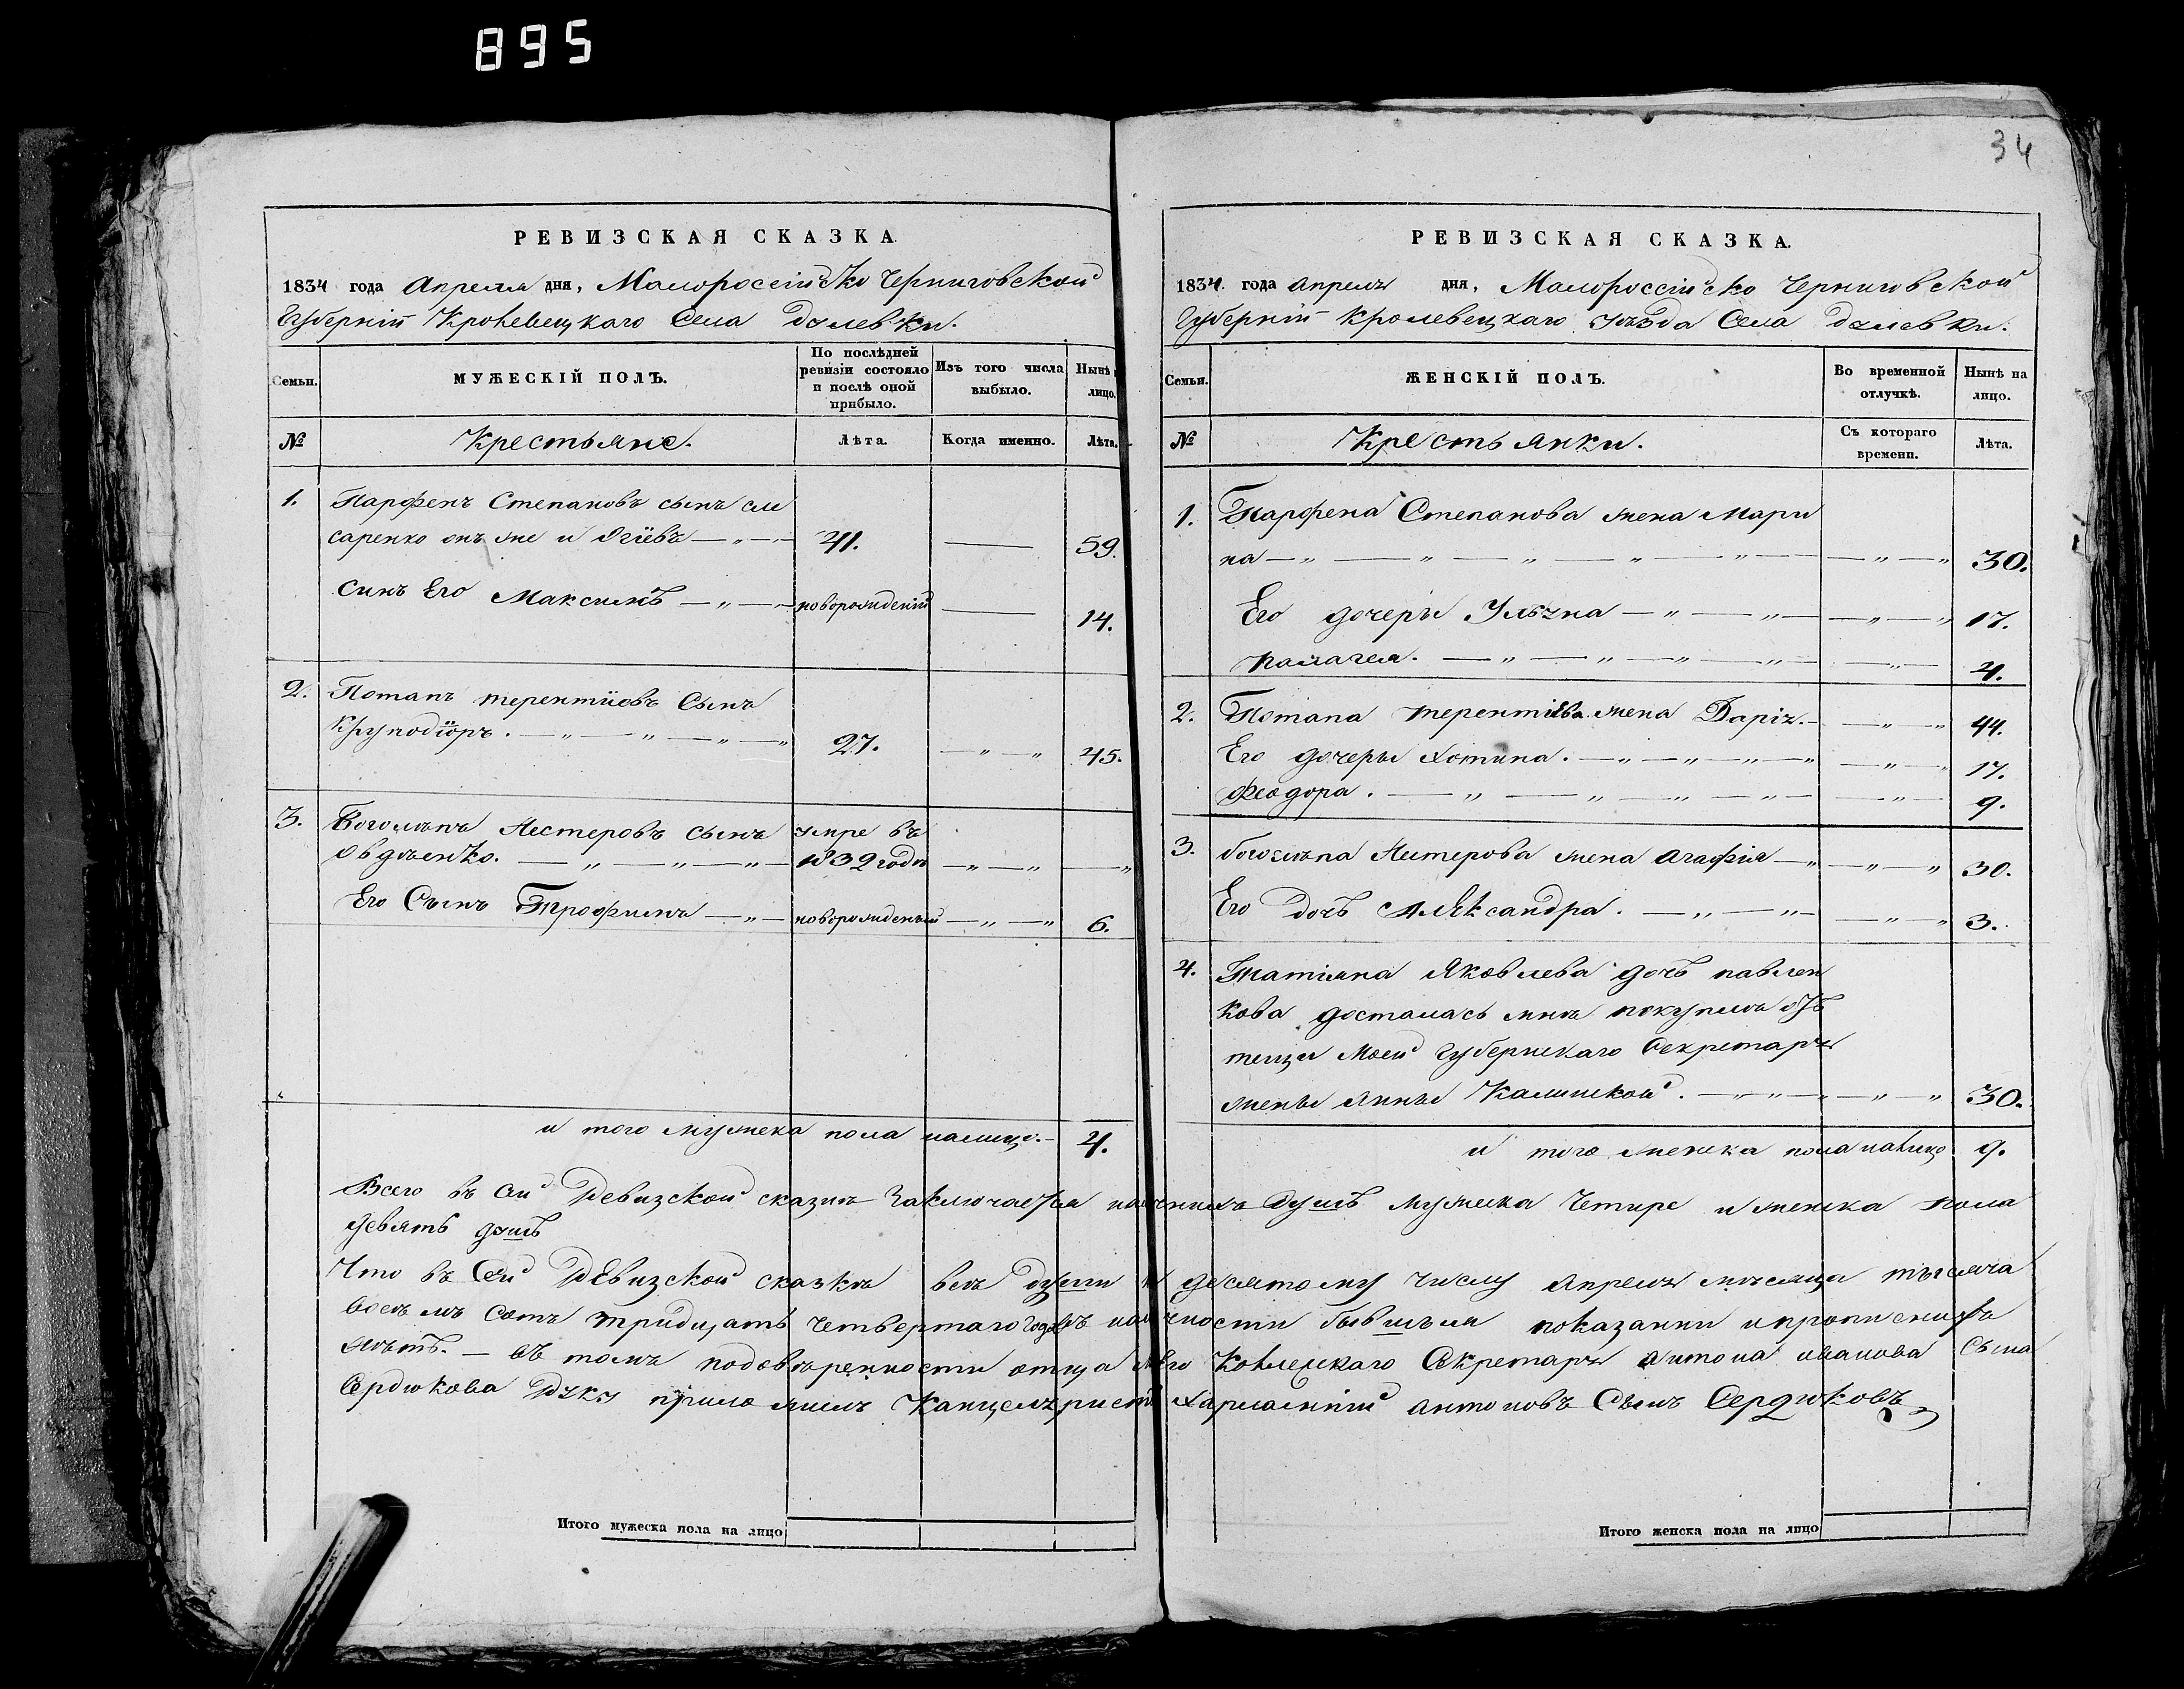 895
34
РЕВИЗСКАЯ СКАЗКА.
1834 года Апреля дня, Малороссійско Черниговской
Губерніи Кролевецкаго Села
Семьи.
МУЖЕСКІЙ ПОЛЪ.
По послѣдней ревизіи состояло и послѣ оной прибыло.
Изъ того числа выбыло.
Нынѣ лицо.
№
Крестьяне.
Лѣта.
Когда именно.
Лѣта.
1. Парфенъ Степановъ сынъ сле
саренко онъ же и 41. 59.
синъ Его Максимъ новорожденій 14.
2. Потапъ терентіовъ Сынъ
27. 45.
3. Нестеровъ сынъ умре въ
Овдѣенко. 1832 годѣ
Его Сынъ Трофимъ новорожденый 6.
и того мужеска пола налицо. 4.
РЕВИЗСКАЯ СКАЗКА.
1834 года апреля дня, Малороссійско Черниговской
Губерніи Кролевецкаго уѣзда Села
Семьи.
ЖЕНСКІЙ ПОЛЪ.
Во временной отлучкѣ.
Нынѣ на лицо.
№
Крестьянки.
Съ котораго времени.
Лѣта.
1. Парфена Степанова жена Мари
на 30.
Его дочеры Уляна 17.
Палагея. 4.
2. Потапа терентіева жена Дарія. 44.
Его дочеры Хотина. 17.
Феодора. 9.
3. Нестерова жена агафія 30.
Его дочъ Александра. 3.
4. Татіяна Яковлева дочъ павлен
кова досталась мнѣ покупкою отъ
тещи Моей Губернскаго Секретаря
жены Анны Калинской. 30.
и того женска пола налицо 9.
Всего въ сей Ревизской сказкѣ Заключается наличнихъ душъ мужеска Четире и женска пола
девять душъ
Что въ Сей Ревизской сказкѣ всѣ души к десятому числу апреля мѣсяца тысяча
восемъ сотъ тридцать четвертаго года въ наличности бывшыя показанни и
лѣтъ. — въ томъ подовѣренности отца Его Коллежскаго Секретаря антона иванова Сына
Сердюкова Руку приложилъ Канцеляристъ Харлампій антоновъ Сынъ Сердюковъ
Итого мужеска пола на лицо
Итого женска пола на лицо